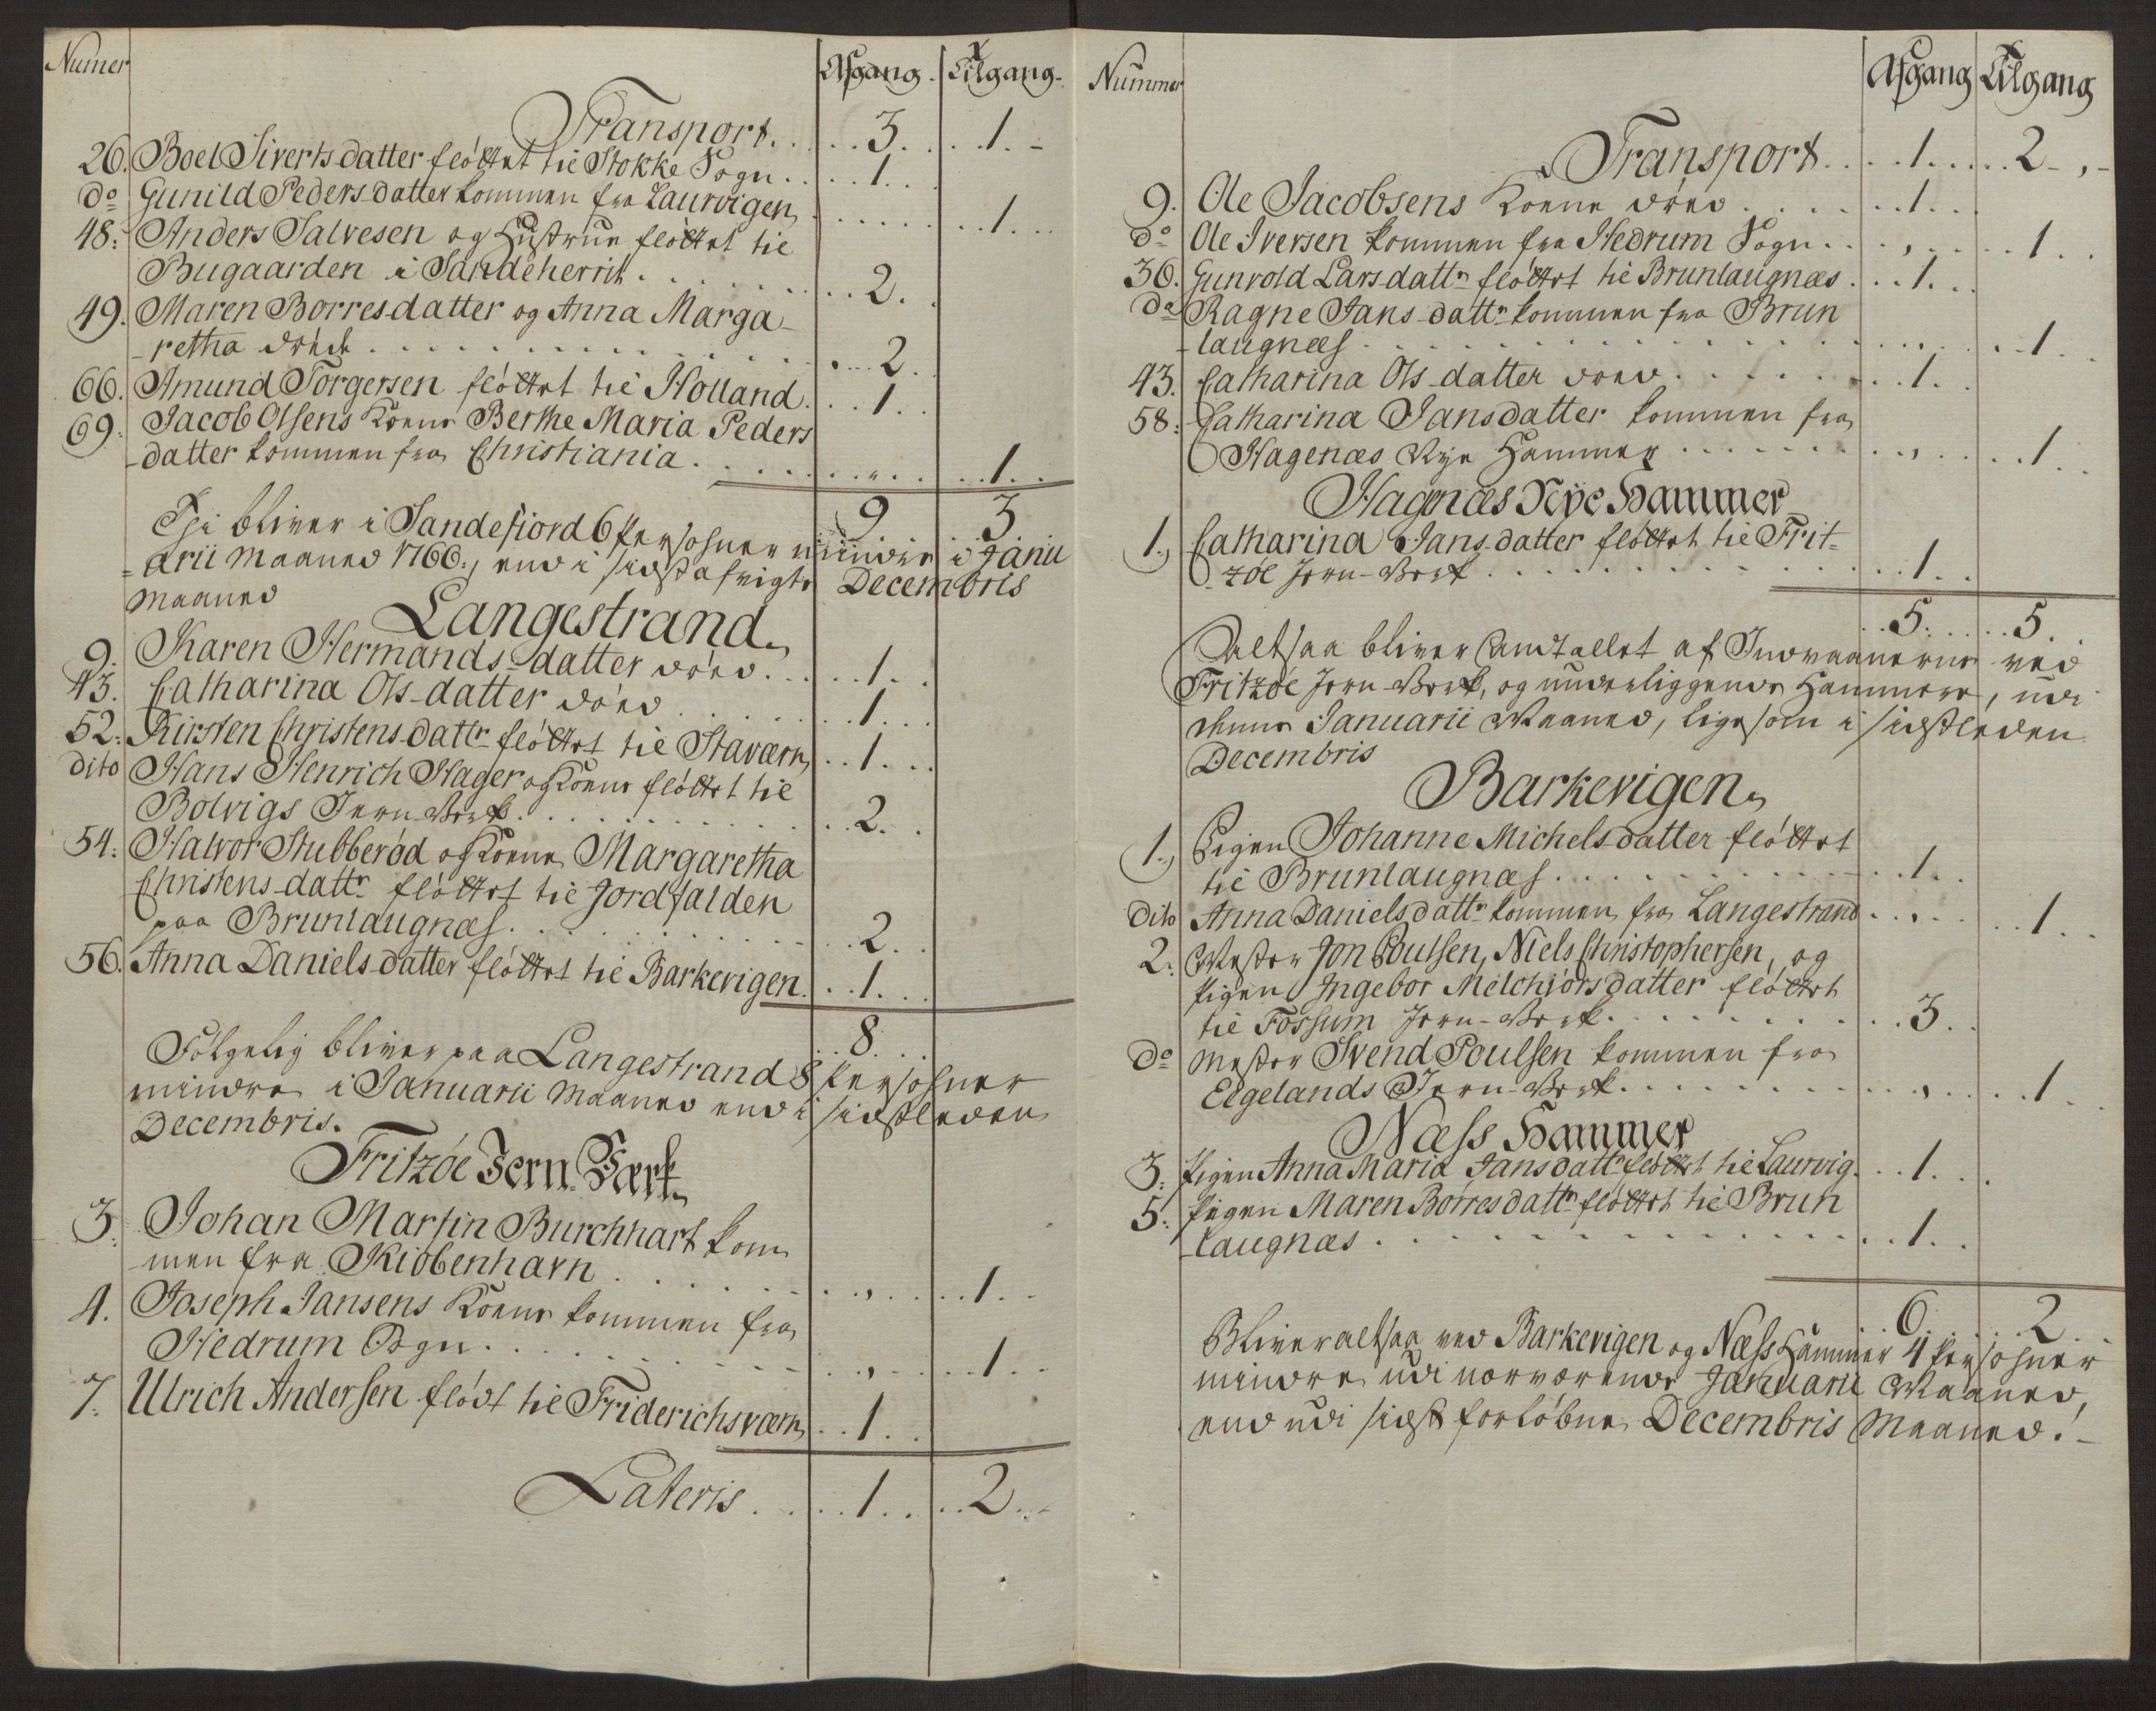 Numer Afgang. Tilgang.
Transport. . . . . 3. . . . 1. -
26. Boel Siverts datter flöttet til Stokke Sogn. . . . 1. . .
do Gunild Peders-datter kommen fra Laurvigen . . . . . . . 1. . .
48: Anders Salvesen og Hustrue flöttet til
Bugaarden i Sandeherrit. . . . . . . . . 2. .
49. Maren Borres-datter og Anna Marga-
-retha döde . . . . . . . . . . . . . 2. .
66. Amund Torgersen flöttet til Holland. . . 1. .
69: Jacob Olsens Kone Berthe Maria Peders
-datter kommen fra Christiania. . . . . . . . . . . 1. .
9 3
Thi bliver i Sandefiord 6 Persohner mindre i Janu
=arii Maaned 1766., end i sidstafvigte Decembris
Maaned
Langestrand
9. Karen Hermands-datter döed. . . . . 1. .
43. Catharina Ols-datter döed . . . . . . . 1. . .
52: Kirsten Christens-dattr flöttet til Staværn . . 1. . .
dito Hans Henrich Hager og Kone flöttet til
Bolvigs Jern-Verk. . . . . . . . . . . 2. .
54: Halvor Stubberöd og Kone Margaretha
Christens-dattr flöttet til Jordfalden
paa Brunlaugnæs. . . . . . . . . . . . 2. .
56. Anna Daniels-datter flöttet til Barkevigen. . . 1. . .
. . 8. . .
Fölgelig bliver paa Langestrand 8 Persohner
mindre i Januarii Maaned end i sidstleden
Decembris.
Fritzöe Jern-Værk
3. Johan Martin Burchhart kom
-men fra Kiöbenhavn . . . . . . . . , . . . . 1. .
4. Joseph Jansens Kone kommen fra
Hedrum Sogn. . . . . . . . . . . . , . . . . 1. .
7. Ulrich Andersen flödt til Friderichsværn . . 1. .
Lateris . . . . . 1. . . . 2. . -
Nummer Afgang Tilgang
Transport . . . . 1. . . . . 2 - , -
9. Ole Jacobsens Kone döed . . . . . . . 1. . .
do Ole Iversen kommen fra Hedrum Sogn. . . , . . . . . 1. .
36. Gunvold Lars-dattr flöttet til Brunlaugnæs . . . 1. . .
do Ragne Jans-dattr kommen fra Brun
-laugnæs. . . . . . . . . . . . . . . . . , . . . . 1. .
43. Catharina Ols-datter döed . . . . . . . . 1. .
58: Catharina Jansdatter kommen fra
Hagenæs Nye Hammer . . . . . . . . , . . . . 1. .
Hagnæs Nye Hammer
1., Catharina Jans-datter flöttet til Frit=
-zöe Jern-Verk . . . . . . . . . . . . . . 1. .
. . 5. . . . . 5. .
Altsaa bliver Andtallet af Indvaanerne ved
Fritzöe Jern-Verk, og underliggende Hammere, udi
denne Januarii Maaned, ligesom i sidstleden
Decembris
Barkevigen
1., Pigen Johanne Michels datter flöttet
til Brunlaugnæs. . . . . . . . . . . . . . 1. .
Dito Anna Daniels dattr kommen fra Langestrand . . , . . . . 1. .
2. Mester Jon Poulsen, Niels Christophersen, og
Pigen Ingebor Melchiors datter flöttet
til Fossum Jern-Verk. . . . . . . . . . 3. .
do Mester Svend Poulsen kommen fra
Elgelands Jern-Verk. . . . . . . . . . . , . . . . 1. .
Næss Hammer
3: Pigen Anna Maria Jansdattr flöttet til Laurvig. . . 1. . .
5: Pigen Maren Börres dattr flöttet til Brun
-laugnæs . . . . . . . . . . . . . . . . . 1. .
. . 6. . . . . 2. .
Bliver altsaa ved Barkevigen og Næss Hammer 4 Persohner
mindre udi nærværende Januarii Maaned,
end udi sidst forlöbne Decembris Maaned. -